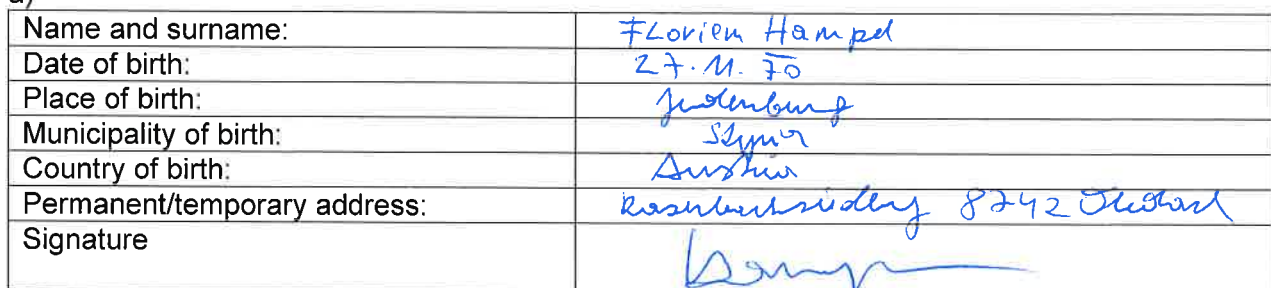 Name and surname: Florien Hampel
Date of birth: 27.11.70
Place of birth: Judenburg
Municipality of birth: Styria
Country of birth: Austria
Permanent/temporary address: 8742
Signature